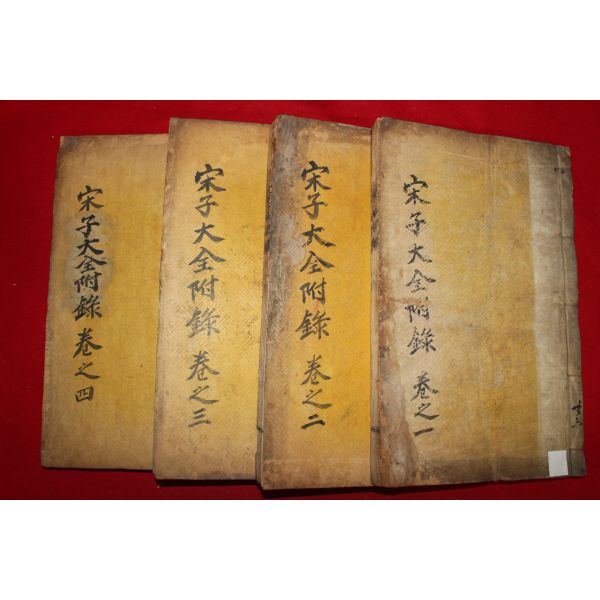 宋子大全附錄 卷之一
宋子大全附錄 卷之二
宋子大全附錄 卷之三
宋子大全附錄 卷之四